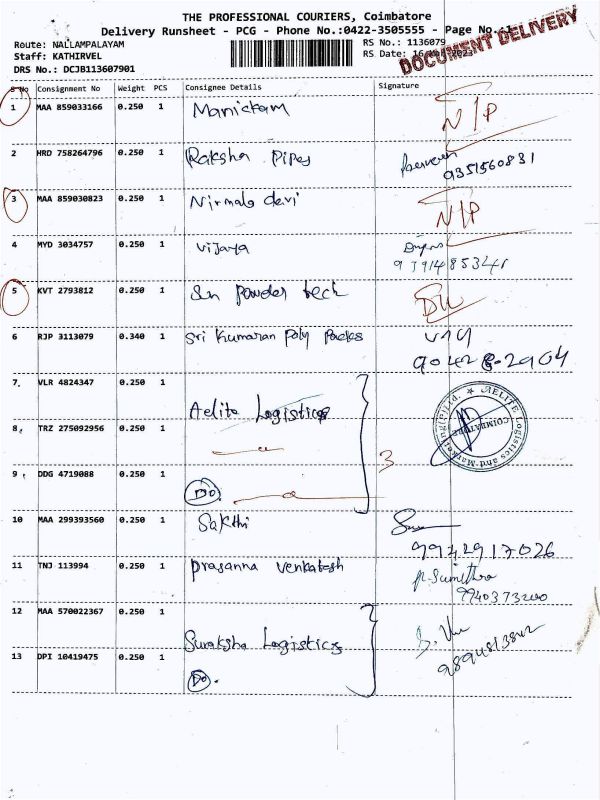 THE PROFESSIONAL COURIERS, Coimbatore
Delivery Runsheet - PCG - Phone No.:0422-3505555 - Page No.:1
Route: NALLAMPALAYAM
RS No.: 1136079
Staff: KATHIRVEL
RS Date: 16 2023
DRS No.: DCJB113607901
DOCUMENT DELIVERY
S No Consignment No Weight PCS Consignee Details Signature
1 MAA 859033166 0.250 1 Manickam N/P
2 HRD 758264796 0.250 1 Raksha Pipes
9351560831
3 MAA 859030823 0.250 1 Nirmala devi N/P
4 MYD 3034757 0.250 1 Vijaya
5 KVT 2793812 0.250 1 Sri Powder tech
6 RJP 3113079 0.340 1 Sri Kumaran Poly Packs
7 VLR 4824347 0.250 1
Aelite Logistics
8 TRZ 275092956 0.250 1
AELITE Logistics and Marketing(P)Ltd. ★ COIMBATORE
3
9 DDG 4719088 0.250 1
Do.
10 MAA 299393560 0.250 1 Sakthi
9942917026
11 TNJ 113994 0.250 1 Prasanna Venkatesh P. Sumithra
9940373200
12 MAA 570022367 0.250 1
Suraksha Logistics
13 DPI 10419475 0.250 1
Do.